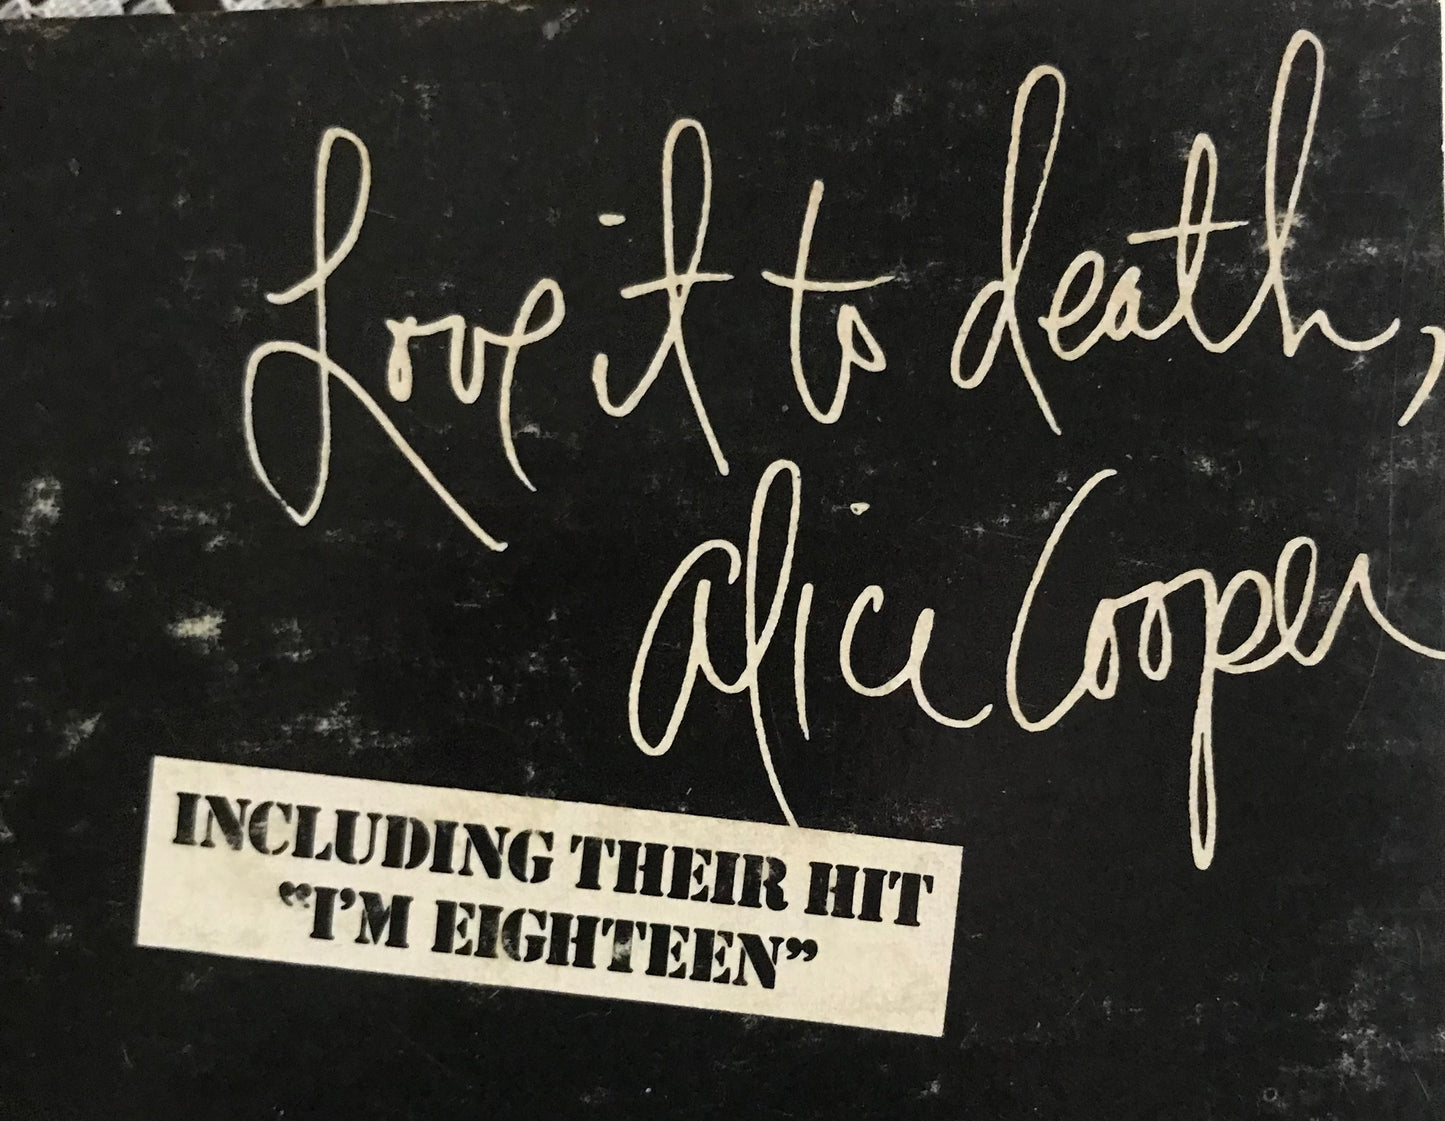 Love it to death,
alice Cooper
INCLUDING THEIR HIT
“I’M EIGHTEEN”